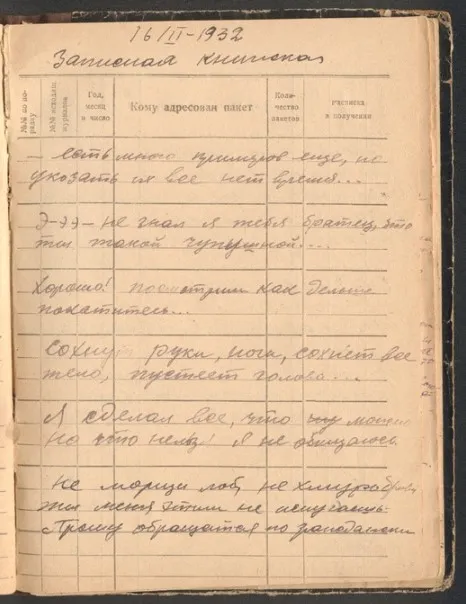 16/II-1932
Записная книжка
№№ по порядку
№№ исходящ. журналов
Год, месяц и число
Кому адресован пакет
Количество пакетов
Расписка в получении
— есть много примеров еще, но
указать их все нет время...
Э-ээ — не знал я тебя братец, что
ты такой чупушной....
Хорошо! посмотрим как дельте
покатитесь...
Сохнут руки, ноги, сохнет все
тело, пустеет голова....
Я сделал все, что можно
но что нельз! Я не
не морщи лоб, не хмурь брови
ты меня этим не испугаешь.
Прошу обращатся по